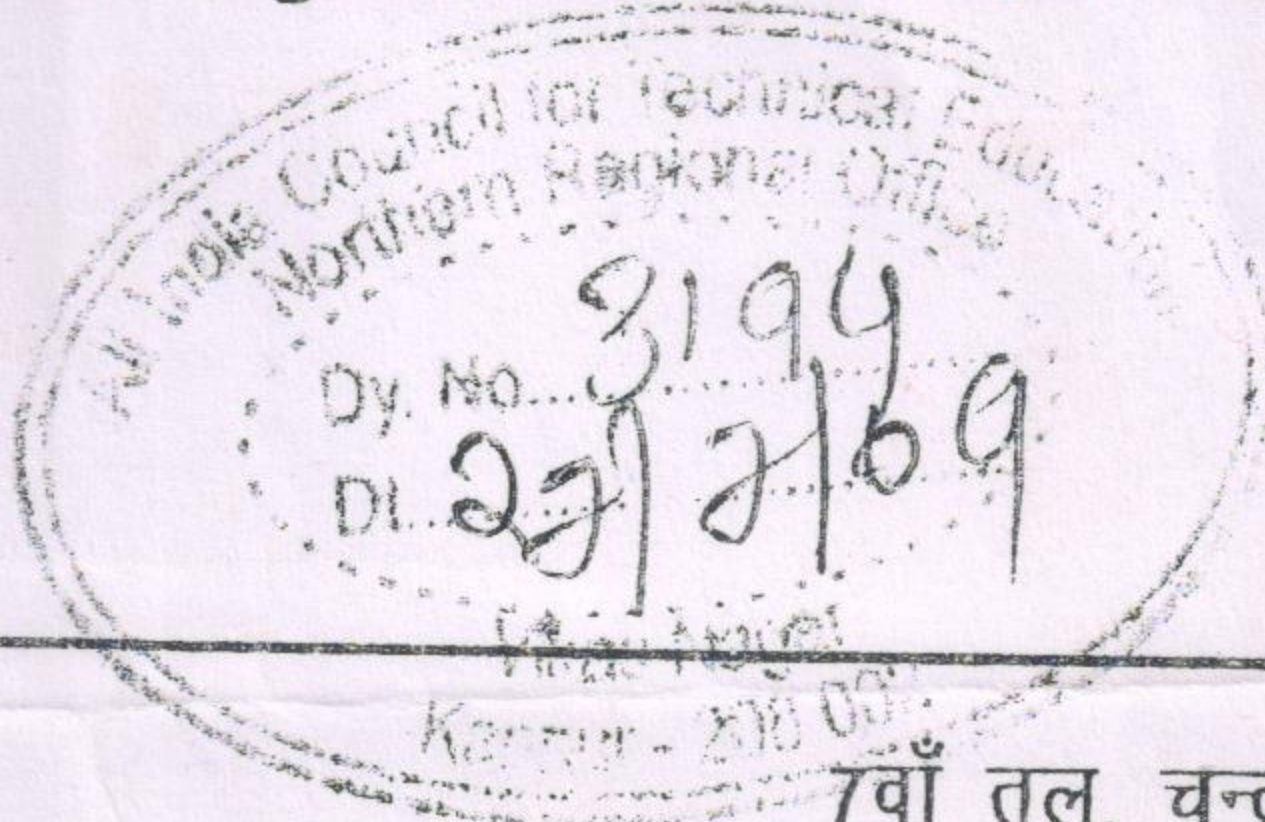 All India Council for Technical Education
Northern Regional Office
Dy. No. 3194
Dt. 22/7/09
Kanpur - 208
7वाँ तल